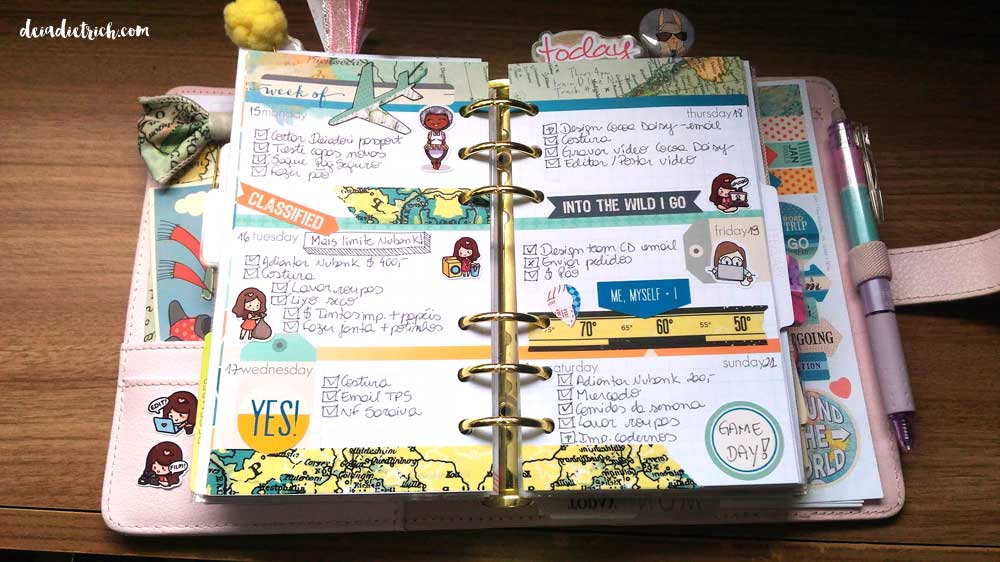 deiadietrich.com
today
week of
15 monday
Cortar Deiadori passport
Testi capas novas
Saque PagSeguro
Fazer pão
CLASSIFIED
16 tuesday
Mais limite Nubank!
Adiantar Nubank $ 400,-
Costura
Lavar roupas
Lixo seco
$ Tintas imp. + papéis
Fazer janta + potinhos
17 wednesday
YES!
Costura
Email TPS
NF Saraiva
thursday 18
Design Cocoa Daisy - email
Costura
Gravar vídeo Cocoa Daisy
Editor / Postar vídeo
INTO THE WILD I GO
friday 19
Design team CD email
Enviar pedidos
$ Pão
ME, MYSELF + I
75° 70° 65° 60° 55° 50°
saturday
sunday 21
Adiantar Nubank 200,-
Mercado
Comidas da semana
Lavar roupas
Imp. cadernos
GAME DAY!
EDIT!
FILM!
JAN
ROAD
TRIP
GO
GOING
AROUND
THE
WORLD
TODAY